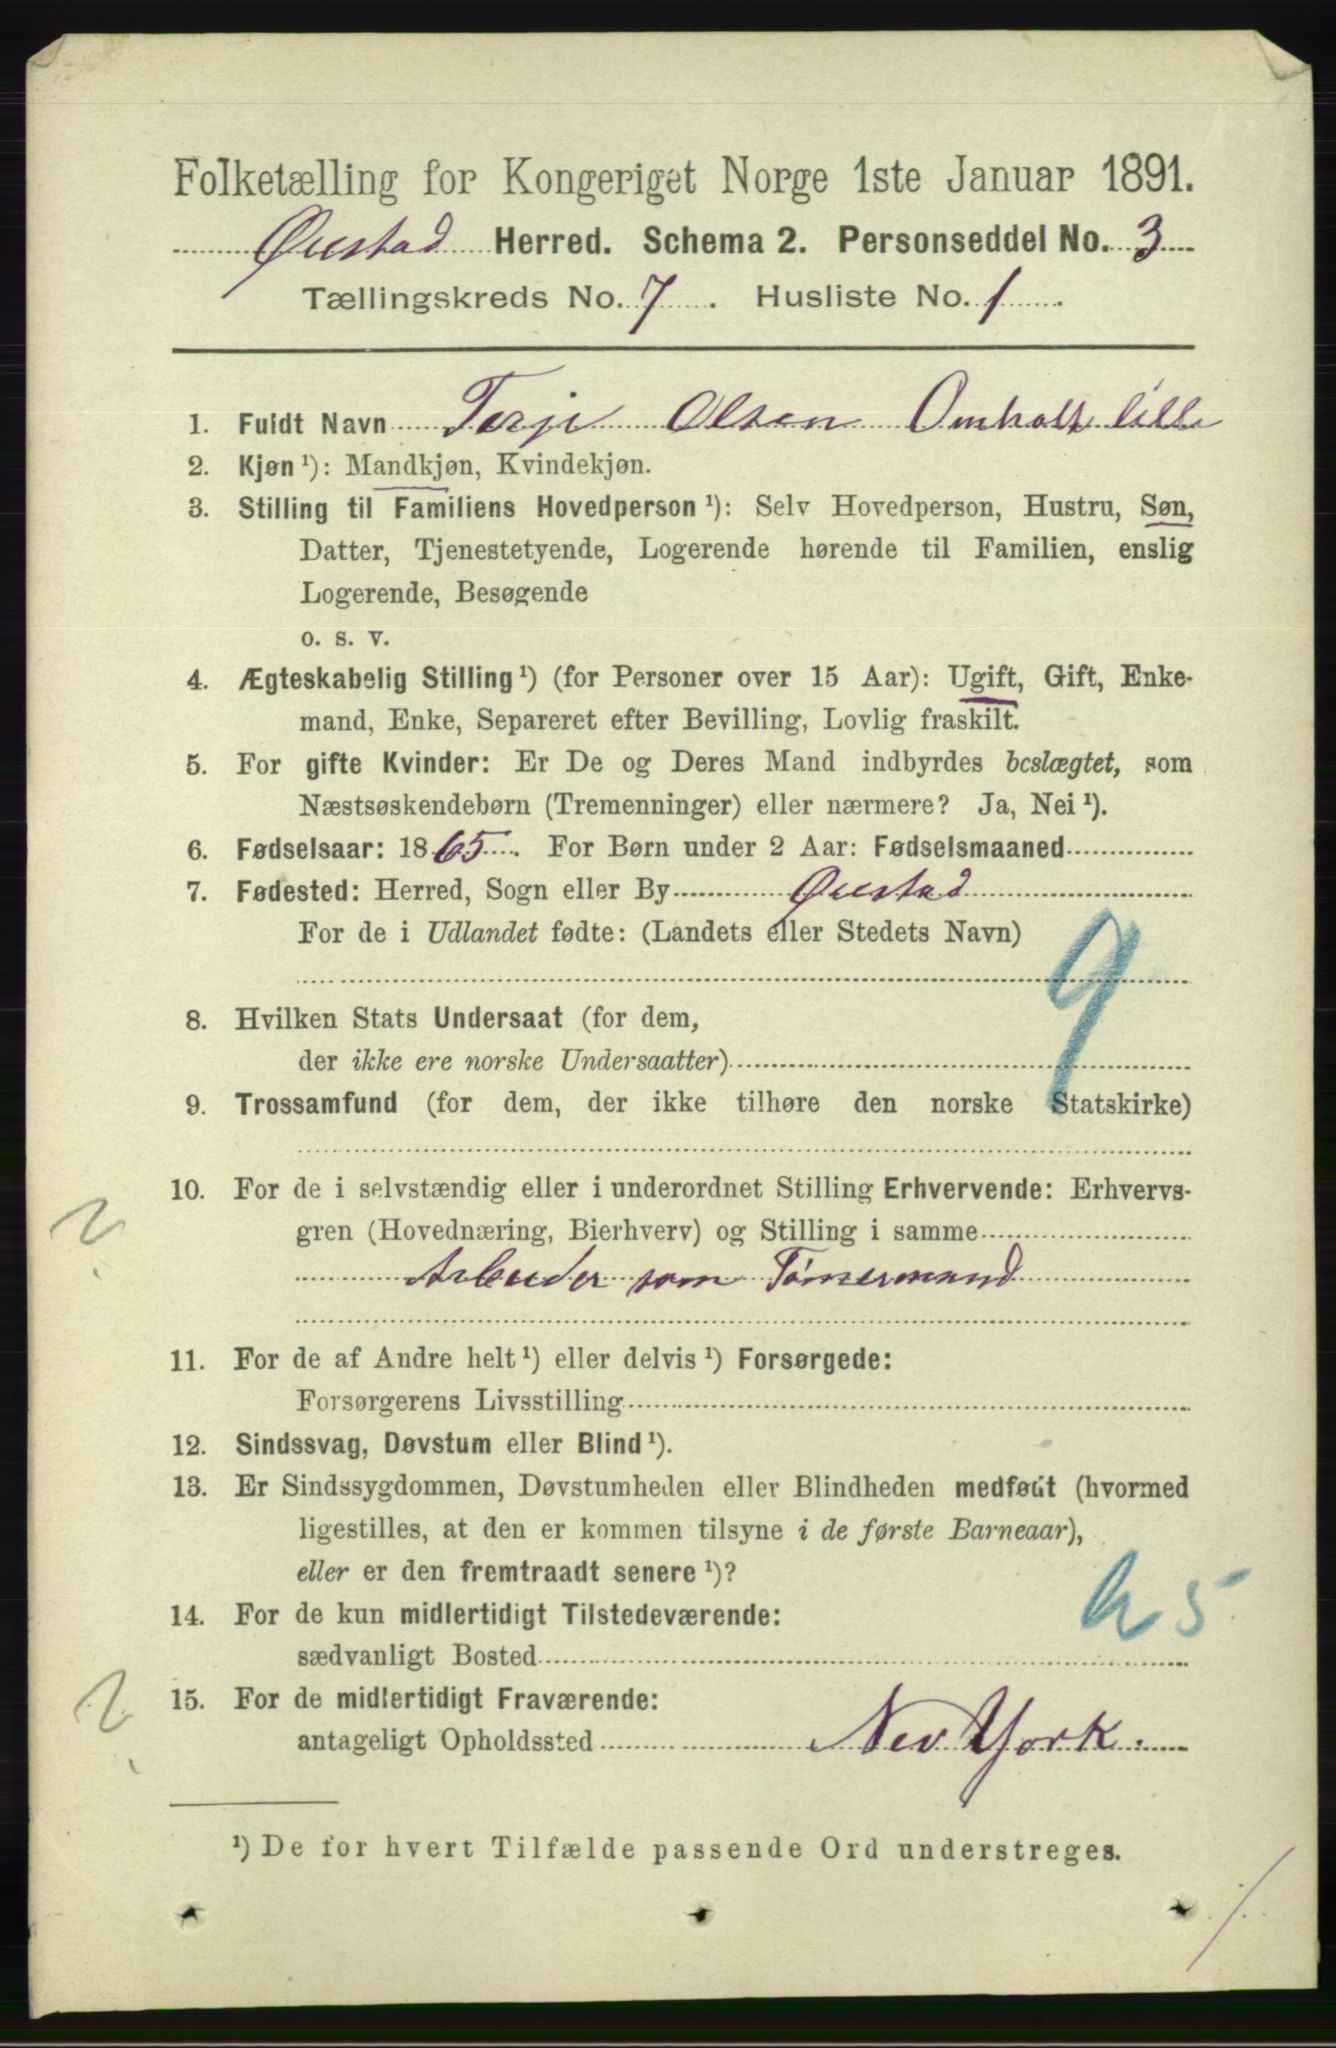 Folketælling for Kongeriget Norge 1ste Januar 1891.
Øiestad Herred. Schema 2. Personseddel No. 3
Tællingskreds No. 7. Husliste No. 1.
1. Fuldt Navn Terje Olsen Omholt lille
2. Kjøn ¹): Mandkjøn, Kvindekjøn.
3. Stilling til Familiens Hovedperson ¹): Selv Hovedperson, Hustru, Søn,
Datter, Tjenestetyende, Logerende hørende til Familien, enslig
Logerende, Besøgende
o. s. v.
4. Ægteskabelig Stilling ¹) (for Personer over 15 Aar): Ugift, Gift, Enke-
mand, Enke, Separeret efter Bevilling, Lovlig fraskilt.
5. For gifte Kvinder: Er De og Deres Mand indbyrdes beslægtet, som
Næstsøskendebørn (Tremenninger) eller nærmere? Ja, Nei ¹).
6. Fødselsaar: 1865. For Børn under 2 Aar: Fødselsmaaned
7. Fødested: Herred, Sogn eller By Øiestad
For de i Udlandet fødte: (Landets eller Stedets Navn)
9
8. Hvilken Stats Undersaat (for dem,
der ikke ere norske Undersaatter)
9. Trossamfund (for dem, der ikke tilhøre den norske Statskirke)
10. For de i selvstændig eller i underordnet Stilling Erhvervende: Erhvervs-
gren (Hovednæring, Bierhverv) og Stilling i samme
?
Arbeider som Tømermand
11. For de af Andre helt ¹) eller delvis ¹) Forsørgede:
Forsørgerens Livsstilling
12. Sindssvag, Døvstum eller Blind ¹).
13. Er Sindssygdommen, Døvstumheden eller Blindheden medfødt (hvormed
ligestilles, at den er kommen tilsyne i de første Barneaar),
eller er den fremtraadt senere ¹)?
14. For de kun midlertidigt Tilstedeværende:
sædvanligt Bosted
15. For de midlertidigt Fraværende:
?
antageligt Opholdssted Nev York.
¹) De for hvert Tilfælde passende Ord understreges.